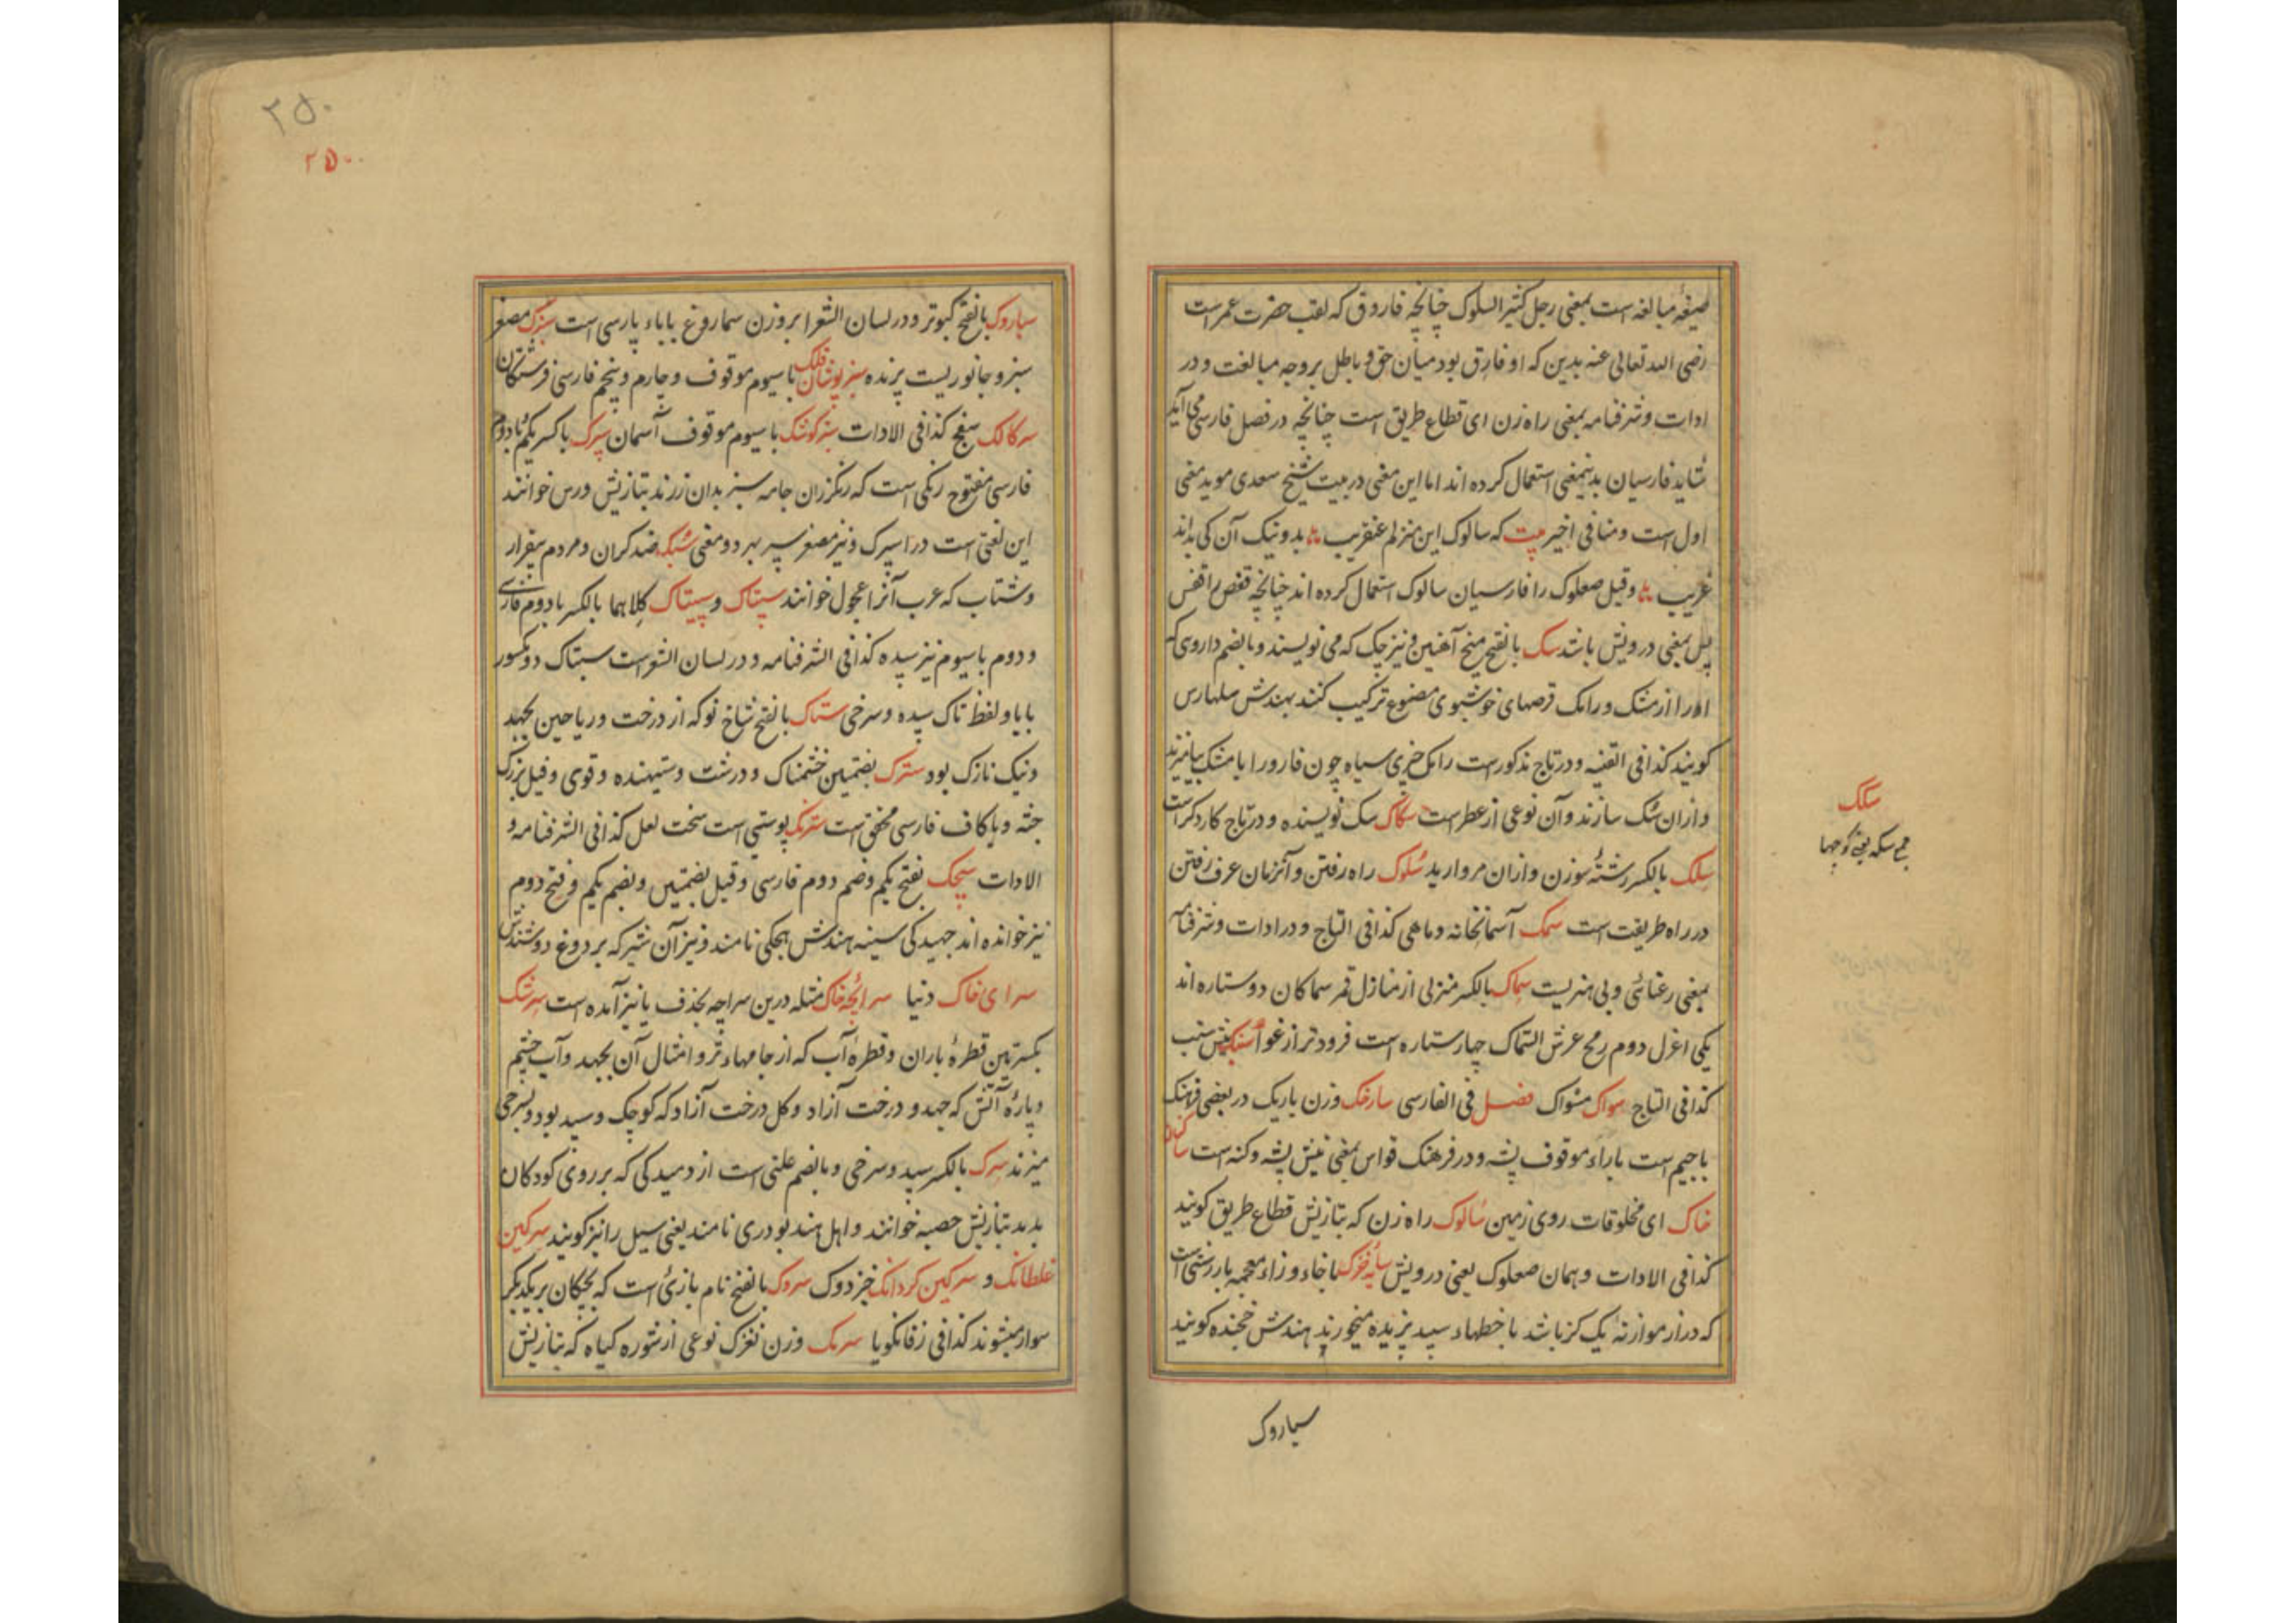 صیغهٔ مبالغه است بمعنی رجل کثیر السلوک چنانچه فاروق که لقب حضرت عمر است
رضی الله تعالی عنه بدین که او فارق بود میان حق و باطل بر وجه مبالغت و در
ادات و شرفنامه بمعنی راه زن ای قطاع طریق است چنانچه در فصل فارسی می آید
شاید فارسیان بدینمعنی استعمال کرده اند اما این معنی در بیت شیخ سعدی موید معنی
اول است و منافی اخیر بیت که سالوک این منزلم عنقریب بد و نیک آن کی بداند
غریب و قیل صعلوک را فارسیان سالوک استعمال کرده اند چنانچه قفص را قفس
پس بمعنی درویش باشد سک بالفتح میخ آهنین و نیز چک که می نویسند و بالضم داروی که
او را از مشک و رامک قرصهای خوشبوی مصنوع ترکیب کنند بهندش سلهارس
کویند کذا فی القنیه و در تاج مذکور است رامک چیزی سیاه چون قار و را با مشک بیامیزند
و ازان سک سازند و آن نوعی از عطر است سکاک سک نویسنده و در تاج کارد کر است
سلک بالکسر رشتهٔ سوزن و ازان مروارید سلوک راه رفتن و آنزمان عرف رفتن
در راه طریقت است سمک آسمانخانه و ماهی کذا فی التاج و در ادات و شرفنامه
بمعنی رعنائی و بی هنریست سماک بالکسر منزلی از منازل قمر سماکان دو ستاره اند
یکی اعزل دوم رمح عرش السماک چهار ستاره است فرودتر از عوا
کذا فی التاج سواک مسواک فصل فی الفارسی سارخک وزن باریک در بعضی فرهنک
با جیم است با راء موقوف پشه و در فرهنک قواس بمعنی نیش پشه و کنه است ساکنان
خاک ای مخلوقات روی زمین سالوک راه زن که بتازیش قطاع طریق کویند
کذا فی الادات و همان صعلوک یعنی درویش با خاء و زاء معجمه
که دراز موازنهٔ یک کز باشد با خطهاء سپید پزیده میخورند بهندش چچنده کویند
سباروک
سکک
جمع سکه یعنی کوچها
۲۵۰
۲۵۰
سباروک بالفتح کبوتر و در لسان الشعرا بر وزن سماروغ با باء پارسی است سبزک مصغر
سبز و جانوریست پرنده سبزپوشان فلک با سیوم موقوف و چارم و پنجم فارسی فرشتکان
سرکالک سفج کذا فی الادات سبزکوشک با سیوم موقوف آسمان سپرک با کسر یکم و با دوم
فارسی مفتوح رنکی است که رنکرزان جامه سبز بدان رزند بتازیش ورس خوانند
این لغتی است در اسپرک و نیز مصغر سپر بهر دو معنی سبک ضد کران و مردم بیقرار
و شتاب که عرب آنرا عجول خوانند سپتاک و سپیتاک کلاهما بالکسر با دوم فارسی
و دوم با سیوم نیز سپده کذا فی الشرفنامه و در لسان الشعراست سبتاک دو مکسور
با یا و لفظ تاک سپده و سرخی ستاک بالفتح شاخ نو که از درخت و ریاحین بجهد
و نیک نازک بود سترک بضمتین خشمناک و درشت و ستیهنده و قوی و فیل بزرک
جثه و با کاف فارسی محقق است سترنک پوستی است سخت لعل کذا فی الشرفنامه و
الادات سچک بفتح یکم و ضم دوم فارسی و قیل بضمتین و بضم یکم و فتح دوم
نیز خوانده اند جهیدکی سینه هندش هچکی نامند و نیز آن شیر که بر دوغ دوشندش
سرای خاک دنیا سراچهٔ خاک مثله درین سراچه بحذف یا نیز آمده است سرشک
بکسرتین قطرهٔ باران و قطرهٔ آب که از جامهاء تر و امثال آن بجهد و آب چشم
و پارهٔ آتش که جهد و درخت آزاد و کل درخت آزاد که کوچک و سپید بود و بسرخی
میزند سرک بالکسر سپید و سرخی و بالضم علتی است از دمیدکی که بر روی کودکان
بدید بتازیش حصبه خوانند و اهل هند بودری نامند یعنی سیل را نیز کویند سرکین
غلطانک و سرکین کردانک خبزدوک سروک بالفتح نام بازئ است که بچکان بر یکدیکر
سوار میشوند کذا فی زفانکویا سرمک وزن نغزک نوعی از شوره کیاه که بتازیش